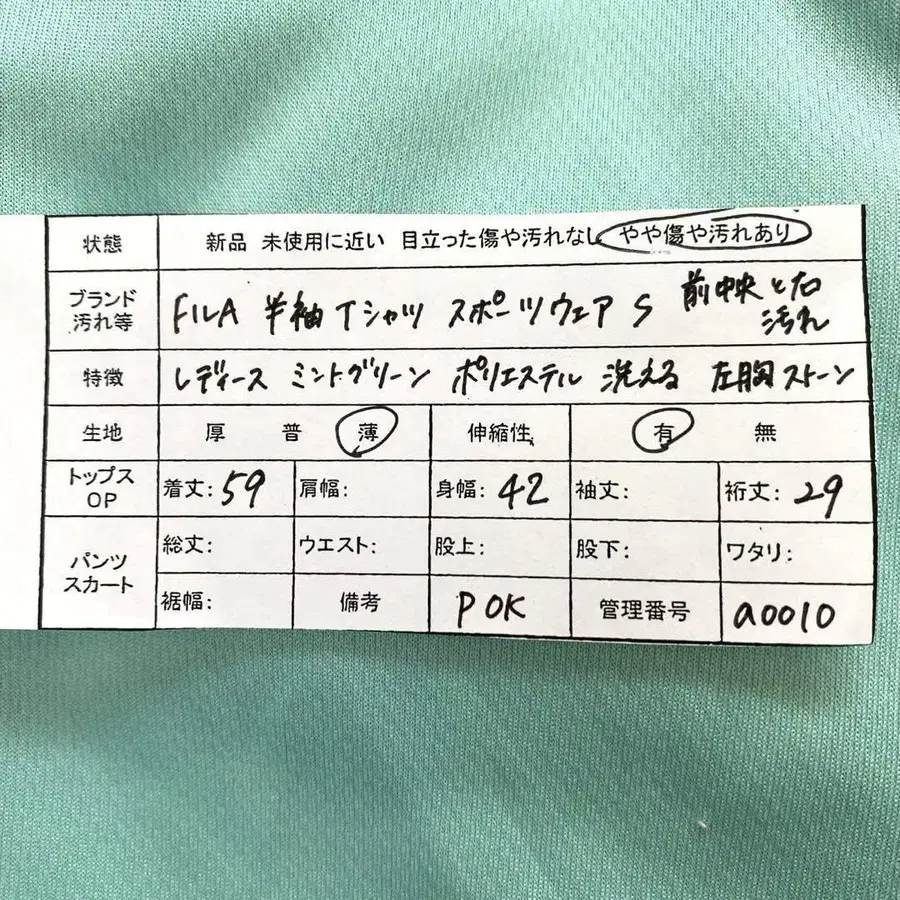 状態 新品 未使用に近い 目立った傷や汚れなし やや傷や汚れあり
ブランド 汚れ等 FILA 半袖Tシャツ スポーツウェア S 前中央と右 汚れ
特徴 レディース ミントグリーン ポリエステル 洗える 左胸ストーン
生地 厚 普 薄 伸縮性 有 無
トップス OP 着丈: 59 肩幅: 身幅: 42 袖丈: 裄丈: 29
パンツ スカート 総丈: ウエスト: 股上: 股下: ワタリ:
裾幅: 備考 POK 管理番号 a0010